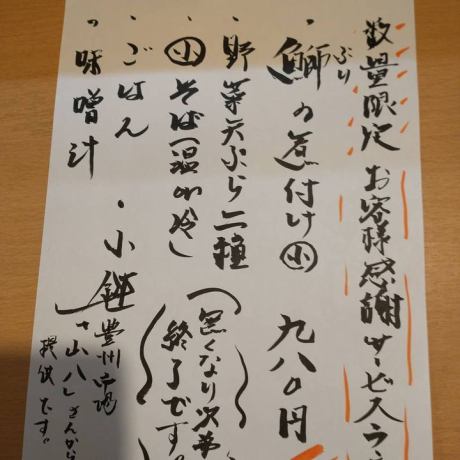 数量限定 お客様感謝サービスラ
ぶり
・鰤の煮付け㊥ 九八〇円
・野菜天ぷら二種
・㊥そば(温or冷)
・ごはん ・小鉢
・味噌汁
(無くなり次第
終了です。)
豊洲市場
"山八"さんから
提供です。